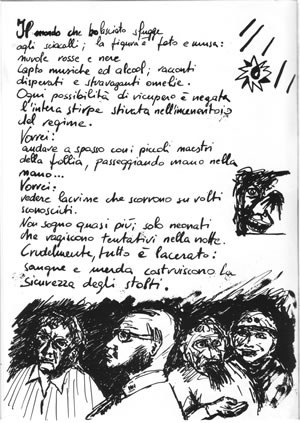 Il mondo che ho lasciato sfugge
agli sciacalli; la figura è feto e musa:
nuvole rosse e nere.
Capto musiche ed alcool; racconti
disperati e stravaganti omelie.
Ogni possibilità di recupero è negata
l'intera stirpe stivata nell'inceneritoio
del regime.
Vorrei:
andare a spasso con i piccoli maestri
della follia, passeggiando mano nella
mano...
Vorrei:
vedere lacrime che scorrono su volti
sconosciuti.
Non sogno quasi più; solo neonati
che vagiscono tentativi nella notte.
Crudelmente, tutto è lacerato:
sangue e merda costruiscono la
sicurezza degli stolti.